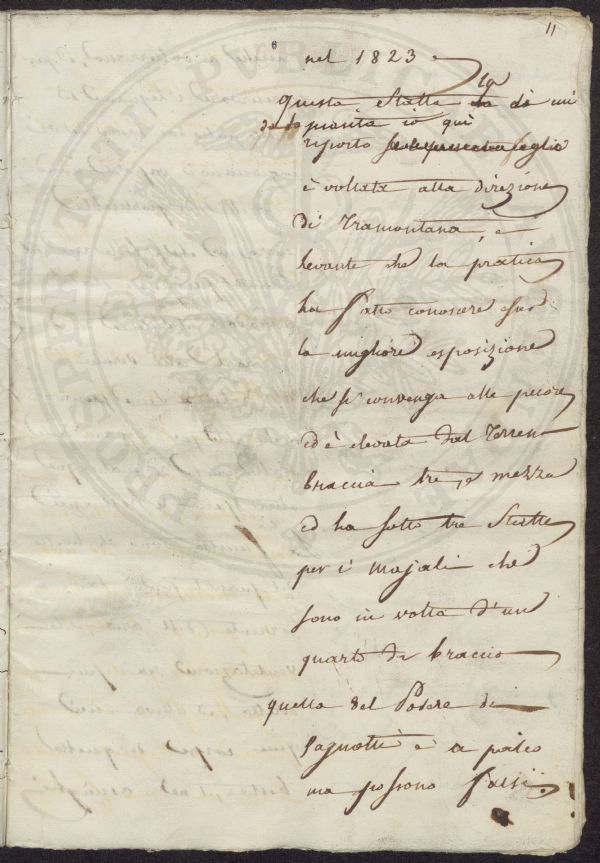 11
6
nel 1823
la
Questa Stalla da di cui
do la pianta io qui
riporto foglio
è voltata alla direzione
di Tramontana, e
levante che la pratica
ha fatto conoscere esser
la migliore esposizione
che si convenga alle pecore
ed è elevata dal Terreno
braccia tre, e mezza
ed ha sotto tre Stalle
per i majali che
sono in volta d'un
quarto di braccio
quella del Podere di
è a palco
ma possono farsi